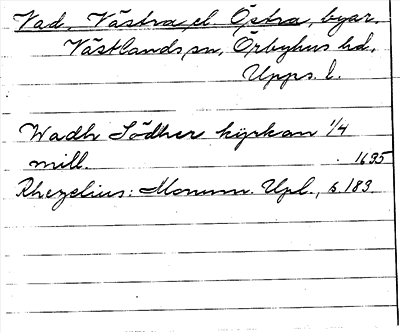 Vad, Västra el. Östra, byar.
Västlands sn, Örbyhus hd,
Upps. l.
Wadh Södher kyrkan 1/4
mill. 1635
Rhezelius: Monum. Upl., s. 183